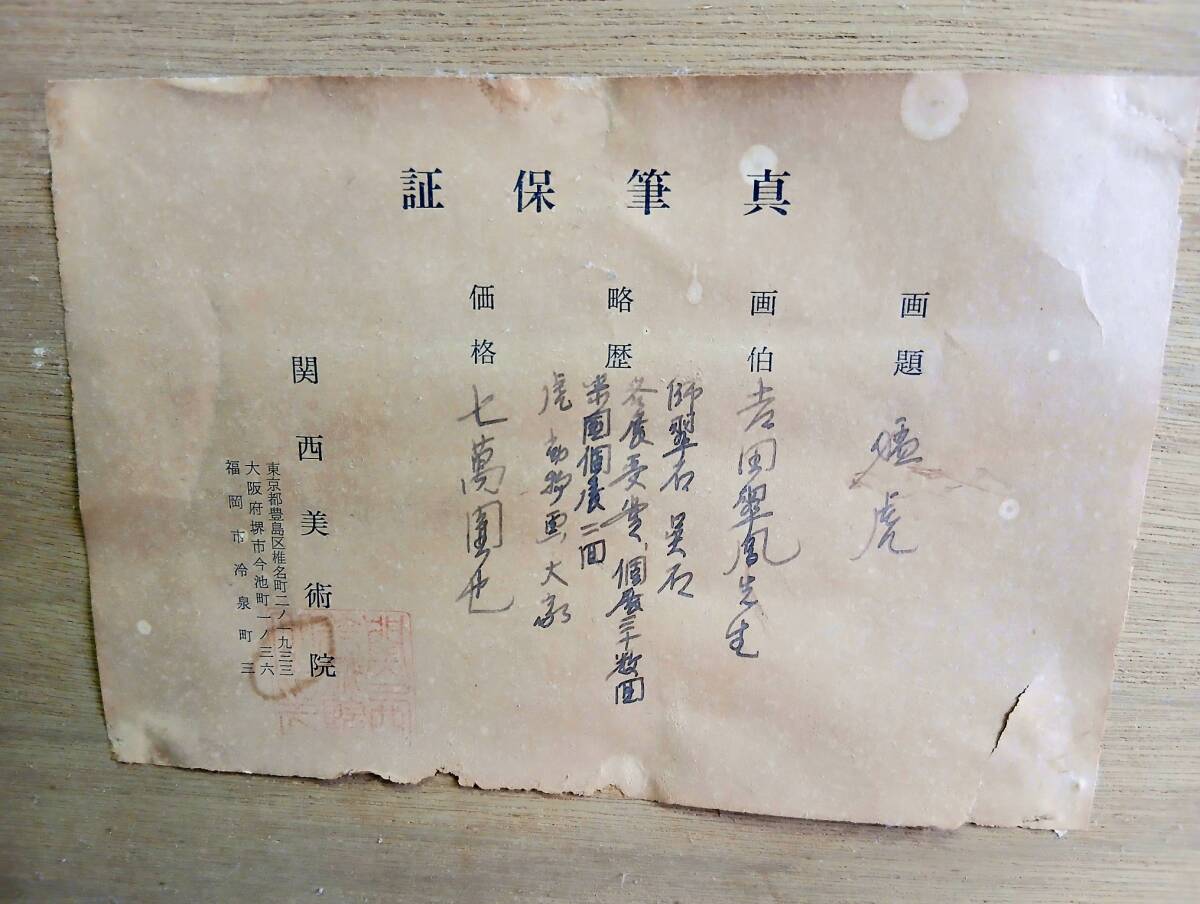 真筆保証
画題 猛虎
画伯 吉田翠鳳先生
略歴 師翠石 呉石
各展受賞、個展三十数回
米国個展二回
虎動物画大家
価格 七萬圓也
関西美術院
東京都豊島区椎名町二ノ一九三三
大阪府堺市今池町一ノ三六
福岡市冷泉町三